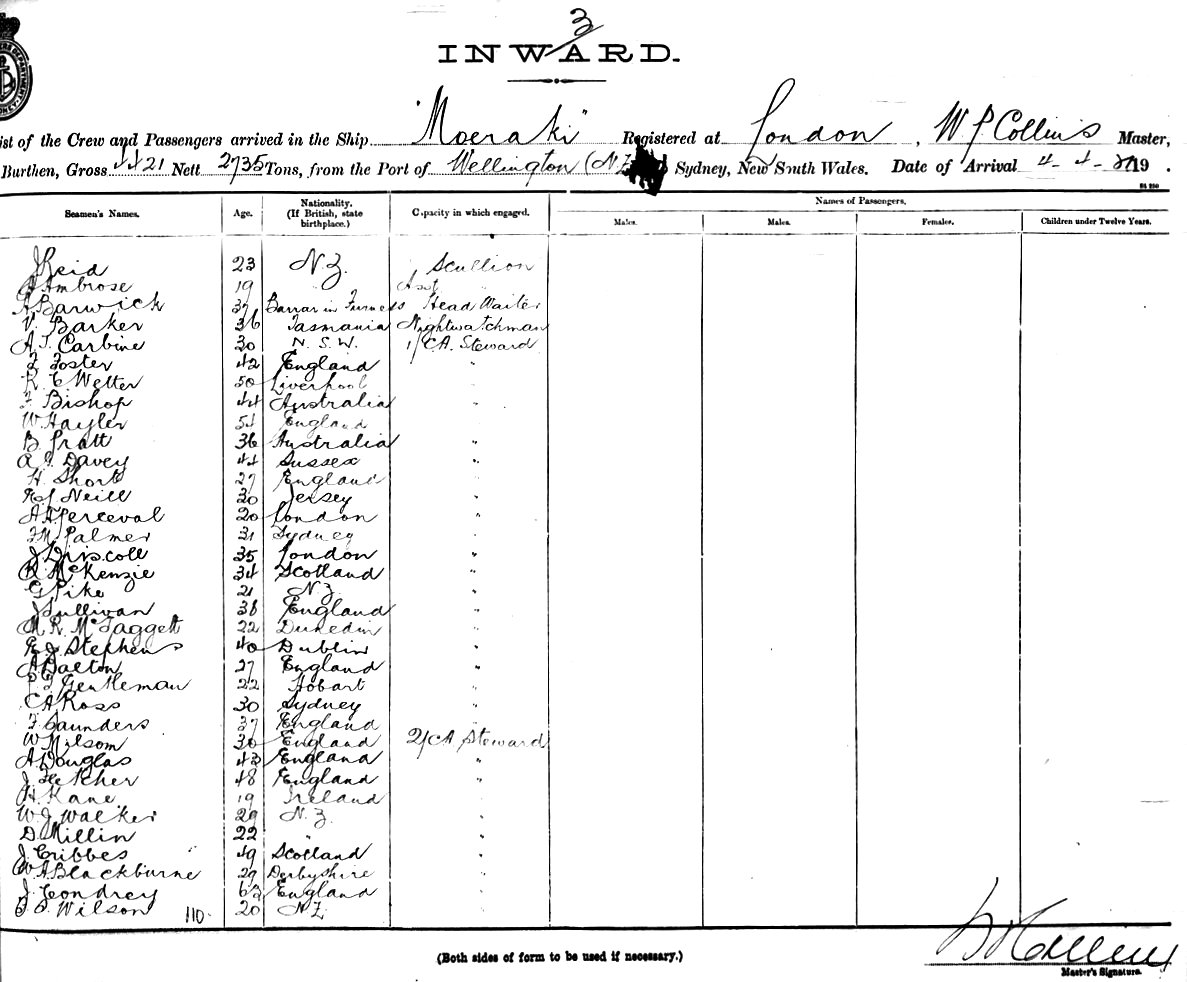 3
INWARD.
ist of the Crew and Passengers arrived in the Ship "Moeraki" Registered at London, W J Collins Master,
Burthen, Gross 4421 Nett 2735 Tons, from the Port of Wellington (NZ Sydney, New South Wales. Date of Arrival 4-4- 19 .
Seamen's Names. Age. Nationality. (If British, state birthplace.) Capacity in which engaged. Names of Passengers.
Males. Males. Females. Children under Twelve Years.
J Reid 23 N Z. Scullion
Ambrose 19 " Asst "
A Barwick 37 Barrar in Furness Head Waiter
V. Barker 36 Tasmania Nightwatchman
A. J. Carbine 30 N. S. W. 1/CA. Steward
F Foster 42 England "
R C Wetter 50 Liverpool "
F Bishop 44 Australia "
W. Hayler 54 England "
B. Pratt 36 Australia "
A. J. Davey 44 Sussex "
H. Short 27 England "
Neill 30 Jersey "
A Perceval 20 London "
Palmer 31 Sydney "
J Driscoll 35 London "
R McKenzie 34 Scotland "
G Pike 21 N Z. "
J Sullivan 38 England "
M. R. McTaggett 22 Dunedin "
Stephens 40 Dublin "
A Dalton 27 England "
Gentleman 22 Hobart "
C A Ross 30 Sydney "
F Saunders 37 England "
W Milsom 30 England 2/CA Steward
A Douglas 43 England "
J Fletcher 48 England "
H. Kane 19 Ireland "
W. J. Walker 29 N. Z. "
D. Millin 22 " "
J. Cribbes 49 Scotland "
W A Blackburne 29 Derbyshire "
J. Condrey 63 England "
Wilson 110. 20 N Z. "
(Both sides of form to be used if necessary.)
W J Collins
Master's Signature.